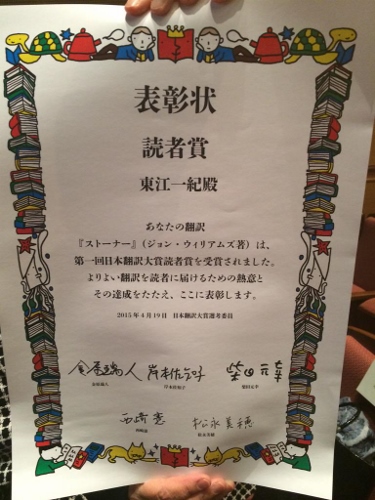 表彰状
読者賞
東江一紀殿
あなたの翻訳
『ストーナー』(ジョン・ウィリアムズ著)は、
第一回日本翻訳大賞読者賞を受賞されました。
よりよい翻訳を読者に届けるための熱意と
その達成をたたえ、ここに表彰します。
2015年4月19日 日本翻訳大賞選考委員
金原瑞人 岸本佐知子 柴田元幸
金原瑞人 岸本佐知子 柴田元幸
西崎憲 松永美穂
西崎憲 松永美穂